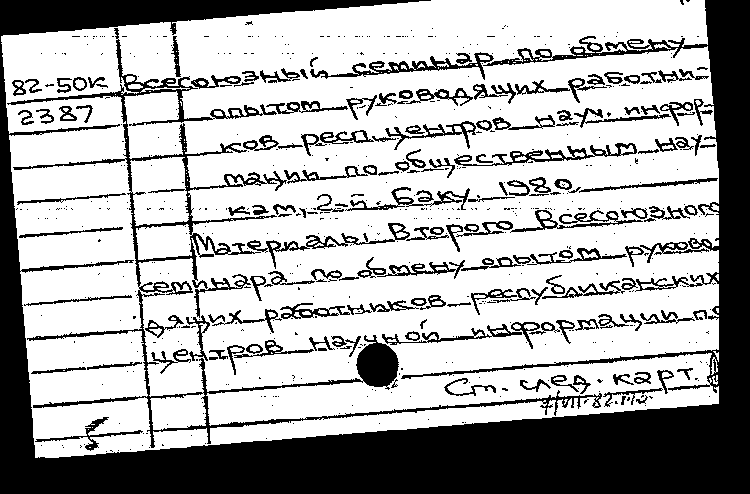 82-50К Всесоюзный семинар по обмену
2387 опытом руководящих работни-
ков респ. центров науч. инфор-
мации по общественным нау-
кам, 2-й. Баку. 1980.
Материалы Второго Всесоюзного
семинара по обмену опытом руково-
дящих работников республиканских
центров научной информации по
См. след. карт.